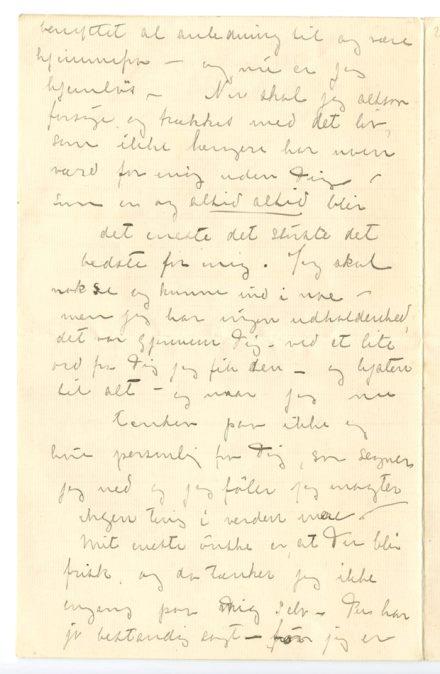 benyttet al anledning til og være
hjemmefra – og nu er jeg
hjemløs – Nu skal jeg altsaa
forsöge og trækkes med det liv,
som ikke længere har noen
værd for mig uden Dig –
som en og altid altid blir
det eneste det største det
bedste for mig. Jeg skal
nok se og kunne ind i noe –
men jeg har ingen udholdenhed,
det var gjennem Dig – ved et lite
ord fra Dig jeg fik den – og hjalp
til alt – og naar jeg nu
tænker paa ikke og
høre personlig fra Dig, saa segner
jeg ned og jeg föler jeg magter
ingen ting i verden mere –
Mit eneste önske er, at Du blir
frisk, og da tænker jeg ikke
engang paa mig selv – Du har
jo bestandig sagt – jeg er